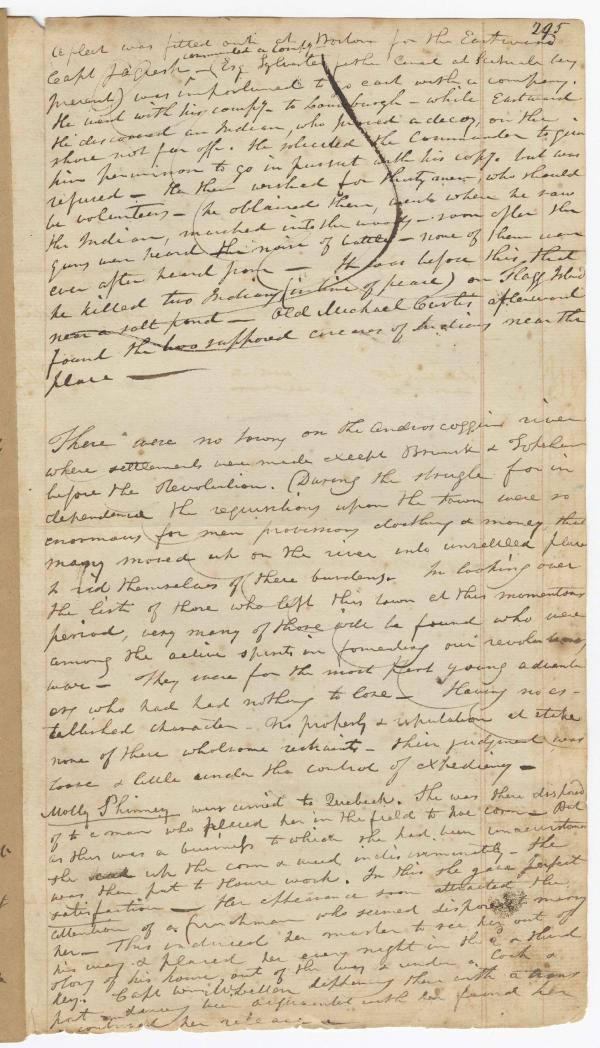 295
A fleet was fitted out at Boston for the Eastward
commanded a Compy
Capt Jas (Esq Sylvester at
present) was importuned to go east with a company.
He went with his compy. to Louisburgh – while Eastward
He discovered an Indian, who proved a decoy, on the
shore not far off. He solicited the Commander to give
him permission to go in pursuit with his copy. but was
refused – He then wished for thirty men, who should
be volunteers – he obtained them, went where he saw
the Indian, marched into the woods – soon after the
guns were heard the noise of battle – none of them were
ever after heard from – It was before this that
he killed two Indians (in time of peace) on Flagg Island
near a salt pond – Old Michael Curtis afterward
found the two supposed carcases of Indians near the
place –
There were no towns on the Androscoggin river
where settlements were made except Brunsk & Topsham
before the Revolution. (During the struggle for in
dependence the requisitions upon the town were so
enormous for men provisions clothing & money, that
many moved up on the river into unsettled places
to rid themselves of these burdens. In looking over
the list of those who left this town at this momentous
period, very many of those will be found who were
among the active spirits in fomenting our revolutionary
war – They were for the most part young adventur
ers who had had nothing to lose – Having no es-
tablished character – no property & reputation at stake
none of these wholesome restraints – their judgment was
loose & little under the control of expediency –
Molly Phinney was carried to Quebeck. She was there disposed
of to a man who placed her in the field to hoe corn – But
as this was a business to which she had been unaccustomed
she cut up the corn & weed indiscriminately – She
was then put to House work. In this she gave perfect
satisfaction – Her appearance soon attracted the
attention of a frenchman who seemed disposed to marry
her – This induced her master to see her out of
his way & placed her every night in the 2 or third
story of his house, out of the way & under a lock &
key. Capt Wm McLellan
part and having been acquainted with her found her